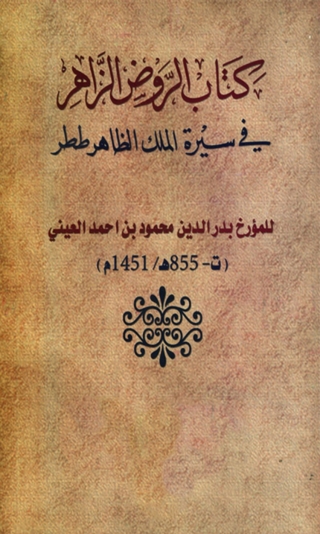 كتاب الروض الزاهر
في سيرة الملك الظاهر ططر
للمؤرخ بدر الدين محمود بن احمد العيني
(ت- 855هـ/ 1451م)